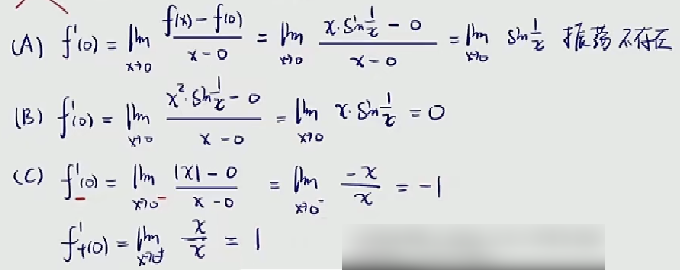 (A) f'(0) = lim_{x→0} \frac{f(x) - f(0)}{x - 0} = lim_{x→0} \frac{x·sin\frac{1}{x} - 0}{x - 0} = lim_{x→0} sin\frac{1}{x} 振荡不存在
(B) f'(0) = lim_{x→0} \frac{x²·sin\frac{1}{x} - 0}{x - 0} = lim_{x→0} x·sin\frac{1}{x} = 0
(C) f'_-(0) = lim_{x→0^-} \frac{|x| - 0}{x - 0} = lim_{x→0^-} \frac{-x}{x} = -1
f'_+(0) = lim_{x→0^+} \frac{x}{x} = 1